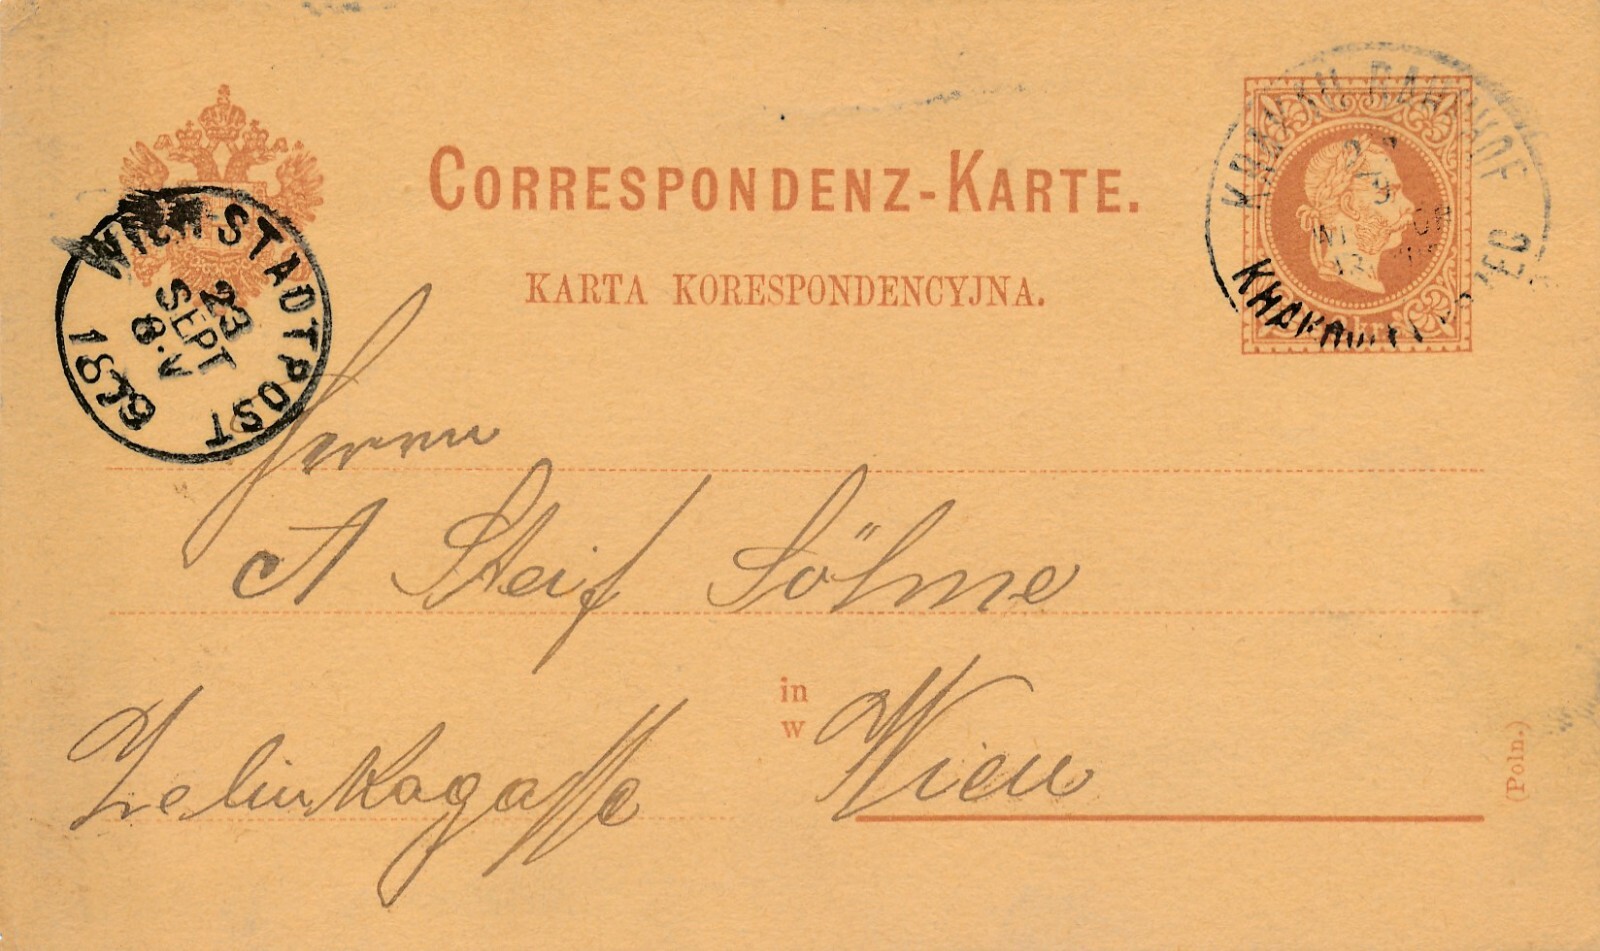 CORRESPONDENZ-KARTE.
KARTA KORESPONDENCYJNA.
WIEN-STADTPOST
23
SEPT
8·V
1879
KRAKAU BAHNHOF
KRAKÓW DWORZEC
Herrn
A Steif Söhne
in
w
Wien
Zelinkagasse
(Poln.)